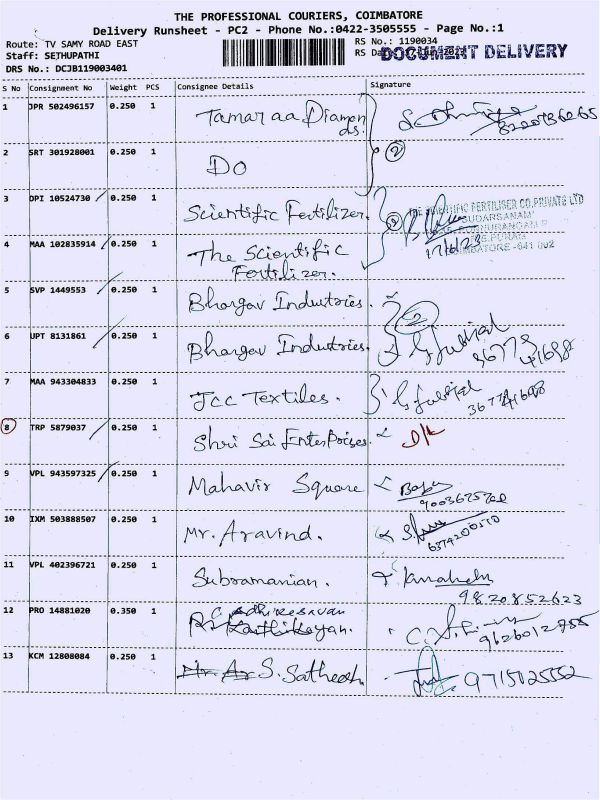 THE PROFESSIONAL COURIERS, COIMBATORE
Delivery Runsheet - PC2 - Phone No.:0422-3505555 - Page No.:1
Route: TV SAMY ROAD EAST
Staff: SETHUPATHI
DRS No.: DCJB119003401
RS No.: 1190034
RS Da
DOCUMENT DELIVERY
S No Consignment No Weight PCS Consignee Details Signature
1 JPR 502496157 0.250 1 Tamaraa Diamon
ds.
2 SRT 301928001 0.250 1 Do
2
3 DPI 10524730 0.250 1 Scientific Fertilizer.
THE SCIENTIFIC FERTILISER CO.PRIVATE LTD
"SUDARSANAM"
COIMBATORE -641 002
17/6/23
4 MAA 102835914 0.250 1 The Scientific
Fertilizer.
5 SVP 1449553 0.250 1 Bhargav Industries.
2
6 UPT 8131861 0.250 1 Bhargav Industries.
36773
41698
7 MAA 943304833 0.250 1 Jcc Textiles.
8 TRP 5879037 0.250 1 Shri Sai EnterPrises. D/L
9 VPL 943597325 0.250 1 Mahavir Square
10 IXM 503888507 0.250 1 Mr. Aravind.
11 VPL 402396721 0.250 1 Subramanian.
9820852623
12 PRO 14881020 0.350 1
Karthikeyan.
9626012755
13 KCM 12808084 0.250 1 S. Satheesh.
9715025552